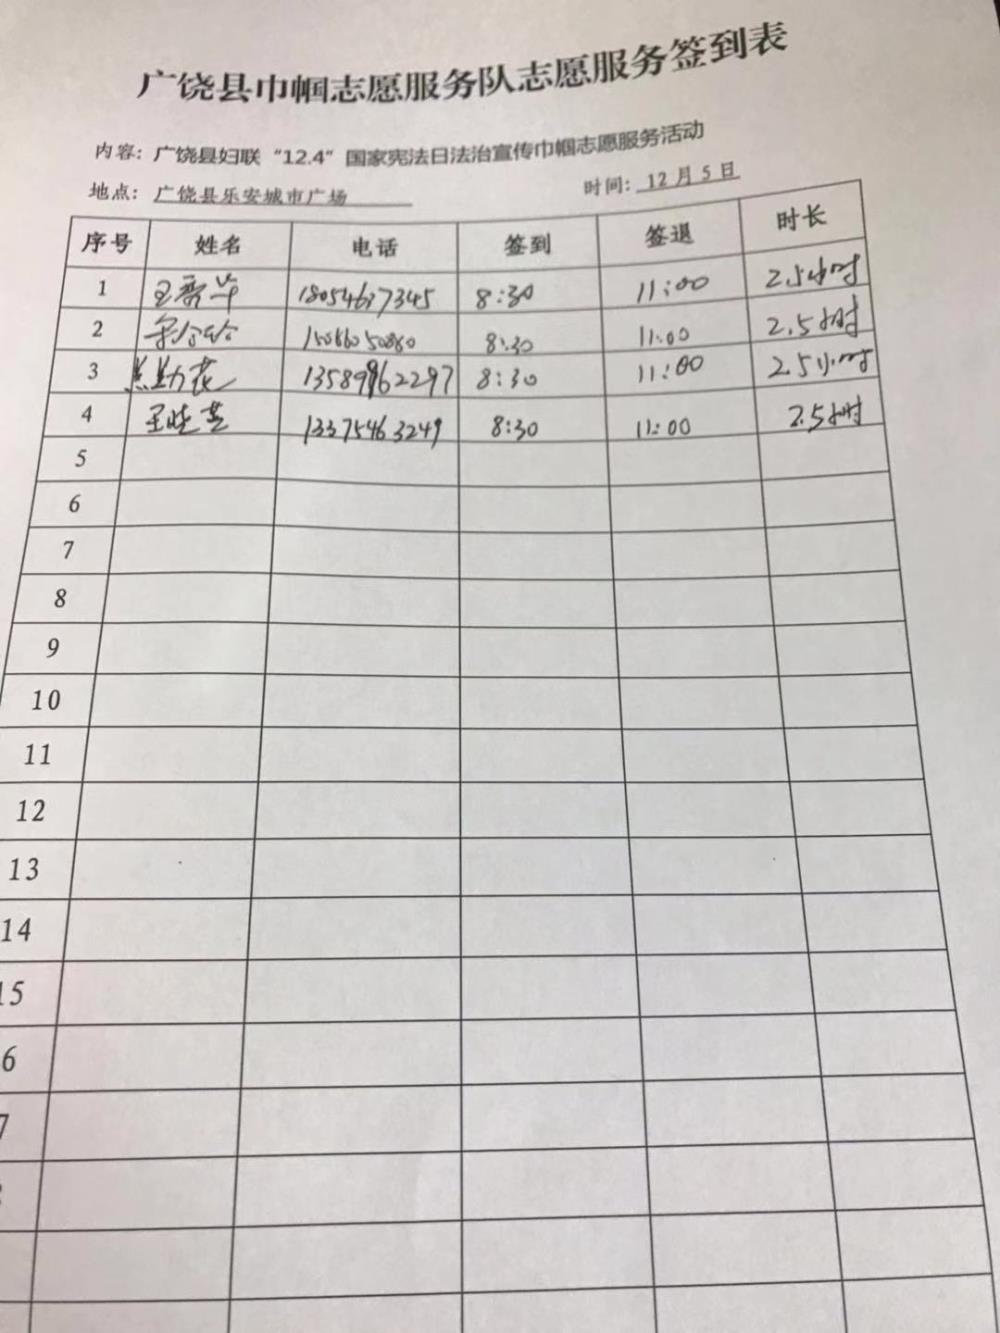 广饶县巾帼志愿服务队志愿服务签到表
内容：广饶县妇联“12.4”国家宪法日法治宣传巾帼志愿服务活动
地点：广饶县乐安城市广场 时间：12月5日
序号 姓名 电话 签到 签退 时长
1 18054617345 8:30 11:00 2.5小时
2 8:30 11:00 2.5小时
3 13589962297 8:30 11:00 2.5小时
4 王晓芸 13375463249 8:30 11:00 2.5小时
5
6
7
8
9
10
11
12
13
14
15
6
7